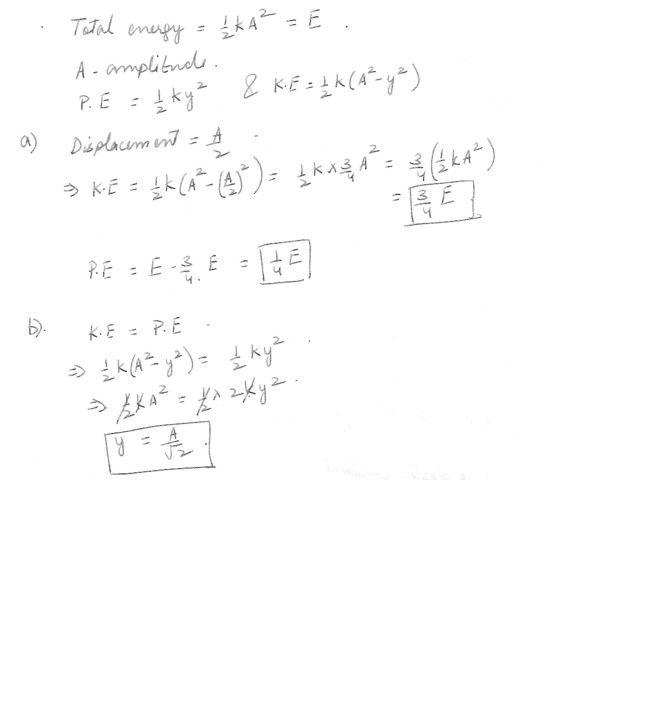 . Total energy = ½kA² = E .
A - amplitude.
P.E = ½ky² & K.E = ½k(A²-y²)
a) Displacement = A/2 .
⇒ K.E = ½k(A²-(A/2)²) = ½k×¾A² = ¾(½kA²)
= ¾ E
P.E = E - ¾. E = ¼E
b). K.E = P.E .
⇒ ½k(A²-y²) = ½ky² .
⇒ ½kA² = ½×2ky² .
y = A/√2 .